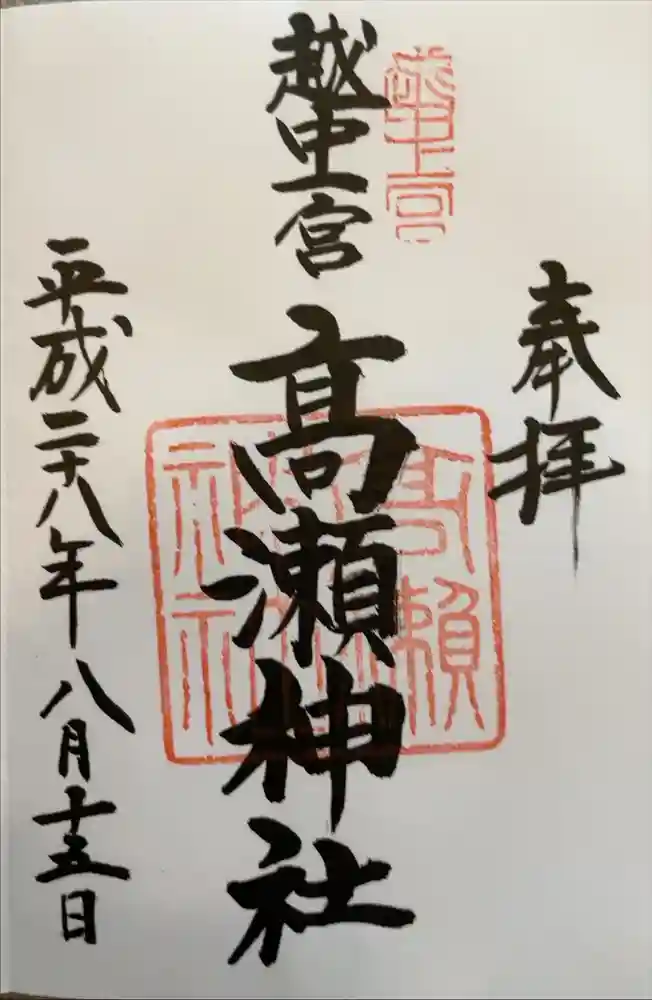 奉拝
越中一宮
越中一宮 高瀬神社
高瀬
神社
平成二十八年八月十五日